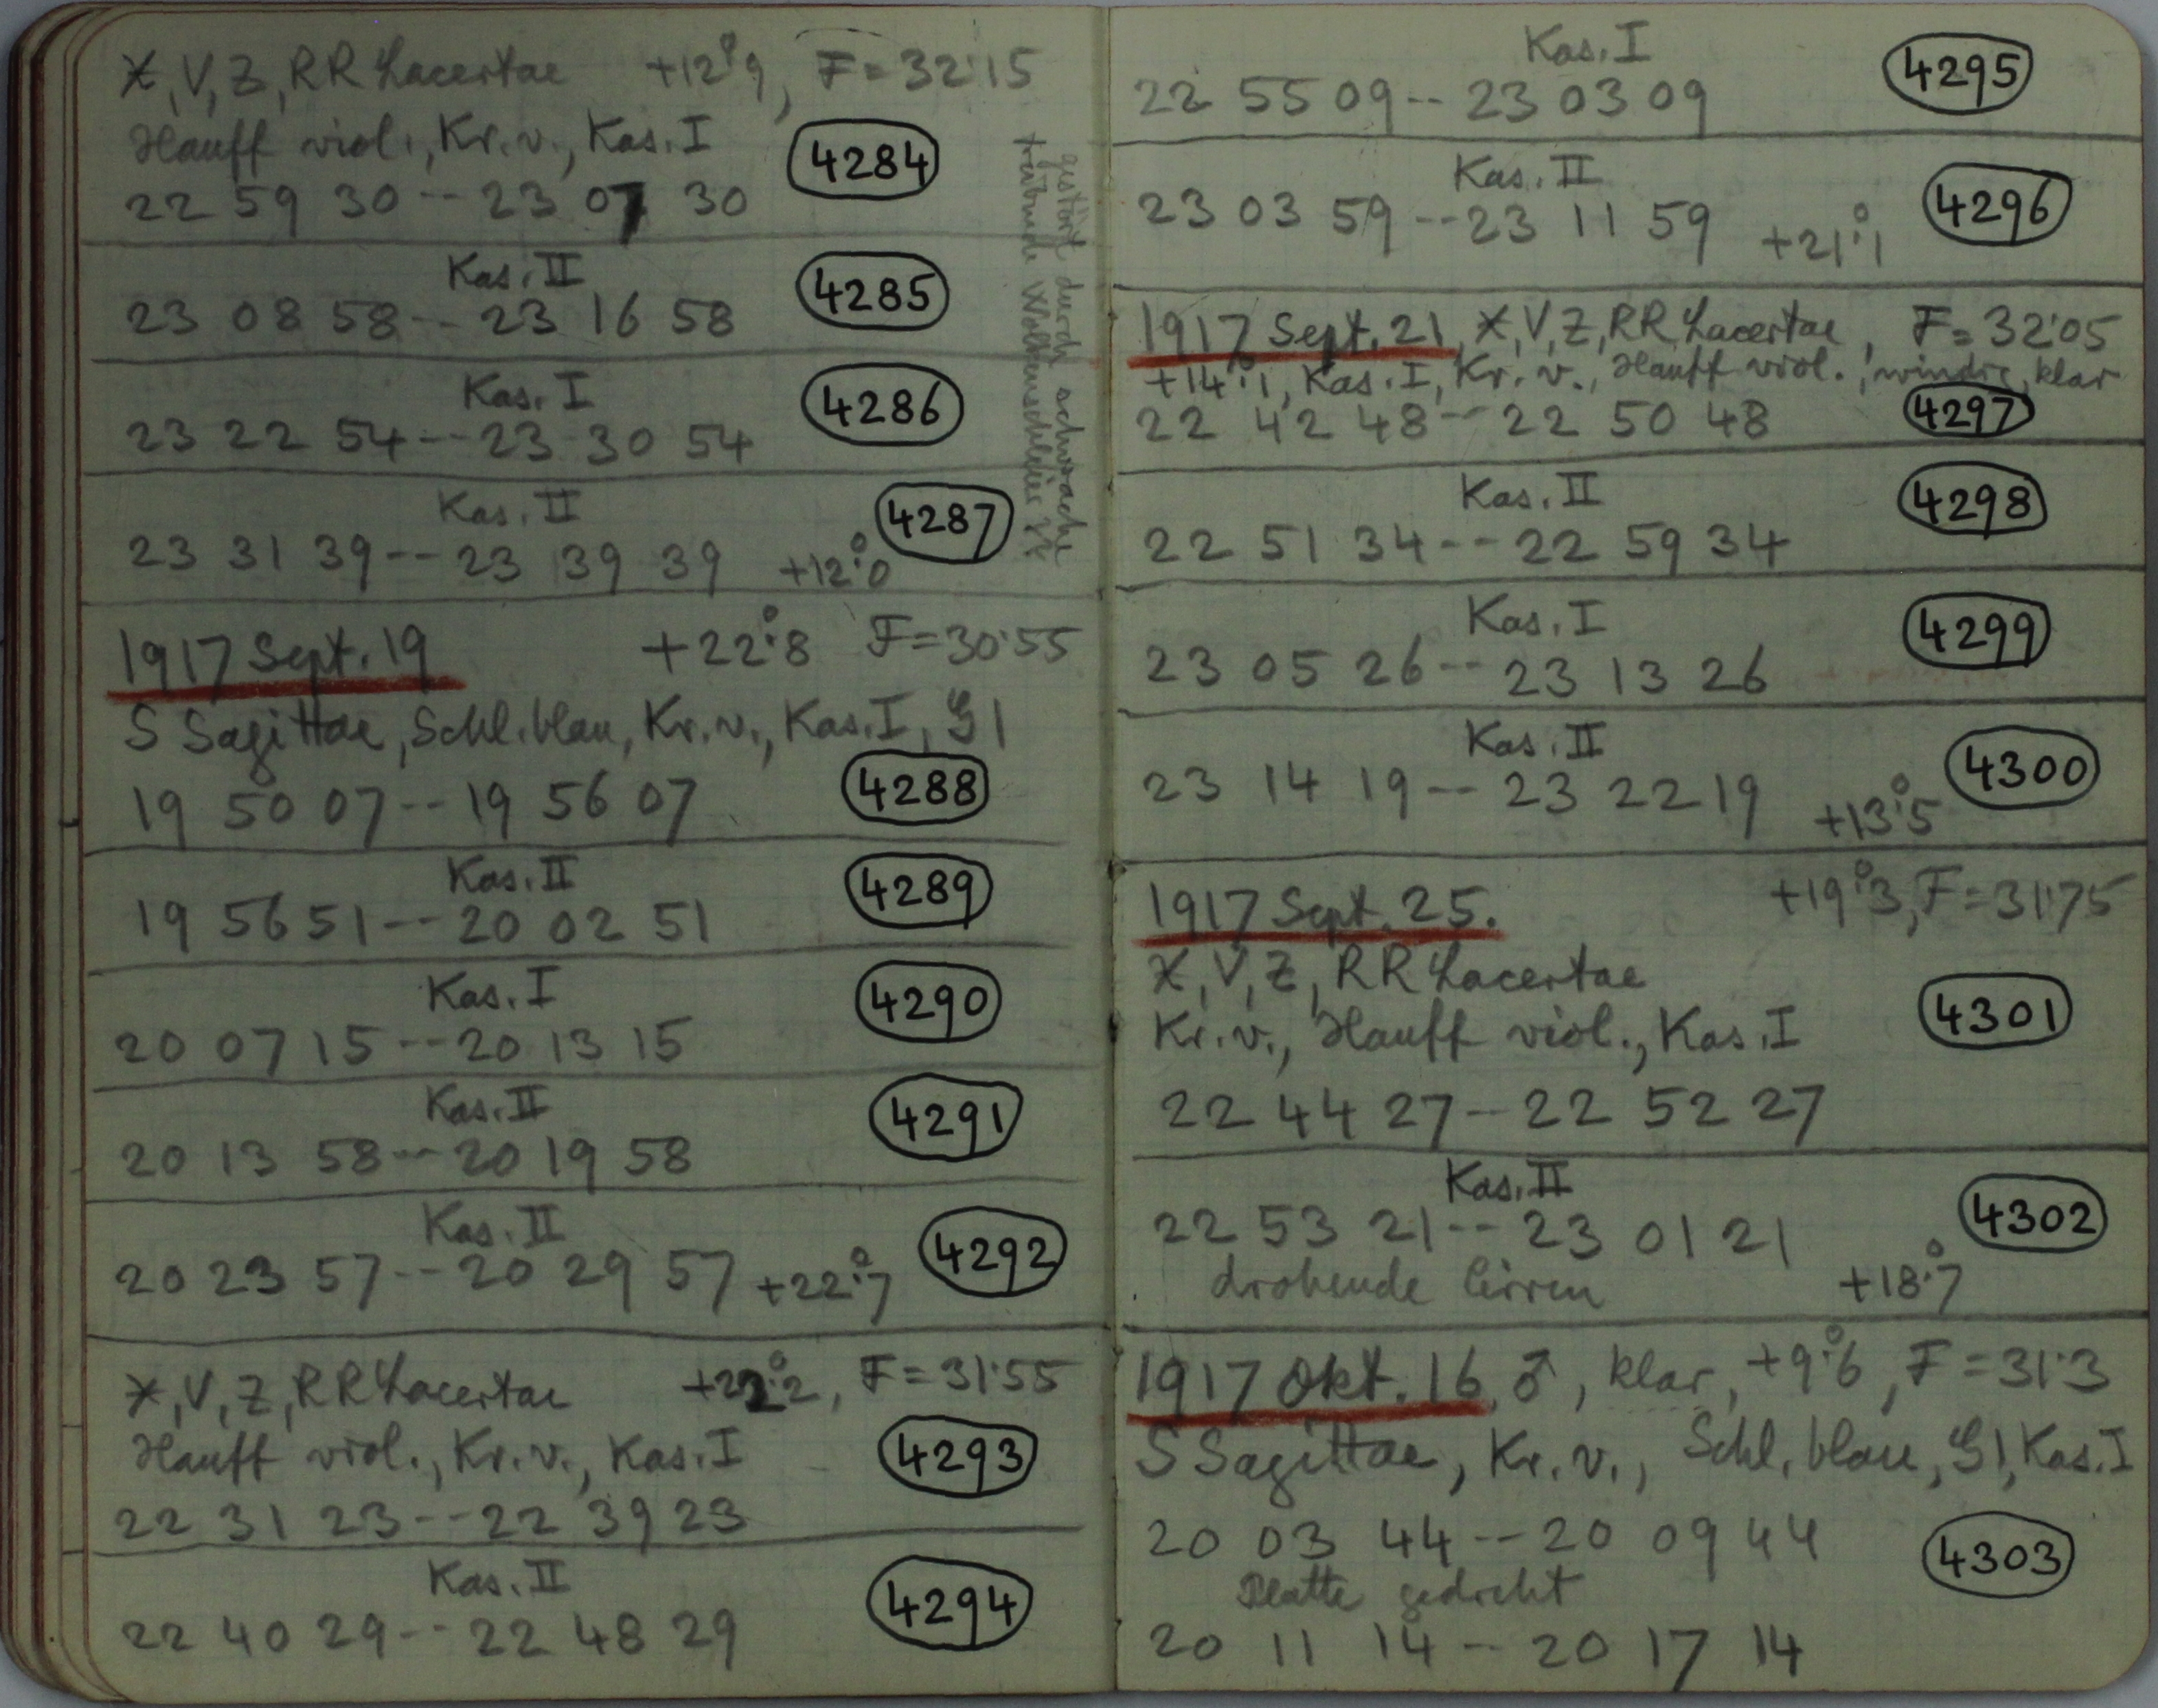 X, V, Z, RR Lacertae +12°.9, F = 32.15
Hauff viol., Kr. v., Kas. I
4284
22 59 30 -- 23 07 30
gestört durch schwache
treibende Wolkenschleier
Kas. II
4285
23 08 58 -- 23 16 58
Kas. I
4286
23 22 54 -- 23 30 54
Kas. II
4287
23 31 39 -- 23 39 39 +12°.0
1917 Sept. 19 +22°.8 F = 30.55
S Sagittae, Schl. blau, Kr. v., Kas. I, G I
4288
19 50 07 -- 19 56 07
Kas. II
4289
19 56 51 -- 20 02 51
Kas. I
4290
20 07 15 -- 20 13 15
Kas. II
4291
20 13 58 -- 20 19 58
Kas. II
4292
20 23 57 -- 20 29 57 +22°.7
X, V, Z, RR Lacertae +22°.2, F = 31.55
Hauff viol., Kr. v., Kas. I
4293
22 31 23 -- 22 39 23
Kas. II
4294
22 40 29 -- 22 48 29
Kas. I
4295
22 55 09 -- 23 03 09
Kas. II
4296
23 03 59 -- 23 11 59 +21°.1
1917 Sept. 21, X, V, Z, RR Lacertae, F = 32.05
+14°.1, Kas. I, Kr. v., Hauff viol., windig, klar
22 42 48 -- 22 50 48 4297
Kas. II
4298
22 51 34 -- 22 59 34
Kas. I
4299
23 05 26 -- 23 13 26
Kas. II
4300
23 14 19 -- 23 22 19 +13°.5
1917 Sept. 25. +19°.3, F = 31.75
X, V, Z, RR Lacertae
Kr. v., Hauff viol., Kas. I
4301
22 44 27 -- 22 52 27
Kas. II
4302
22 53 21 -- 23 01 21
drohende Cirren +18°.7
1917 Okt. 16 ♂, klar, +9°.6, F = 31.3
S Sagittae, Kr. v., Schl. blau, G I, Kas. I
20 03 44 -- 20 09 44
4303
Platte gedreht
20 11 14 -- 20 17 14